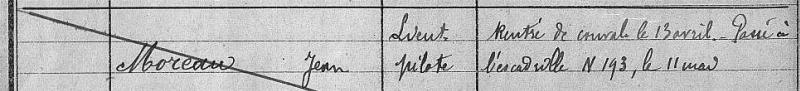 Lieut Rentré de conval. le 13 avril. - Passé à
Moreau Jean pilote l'escadrille N 193, le 11 mai